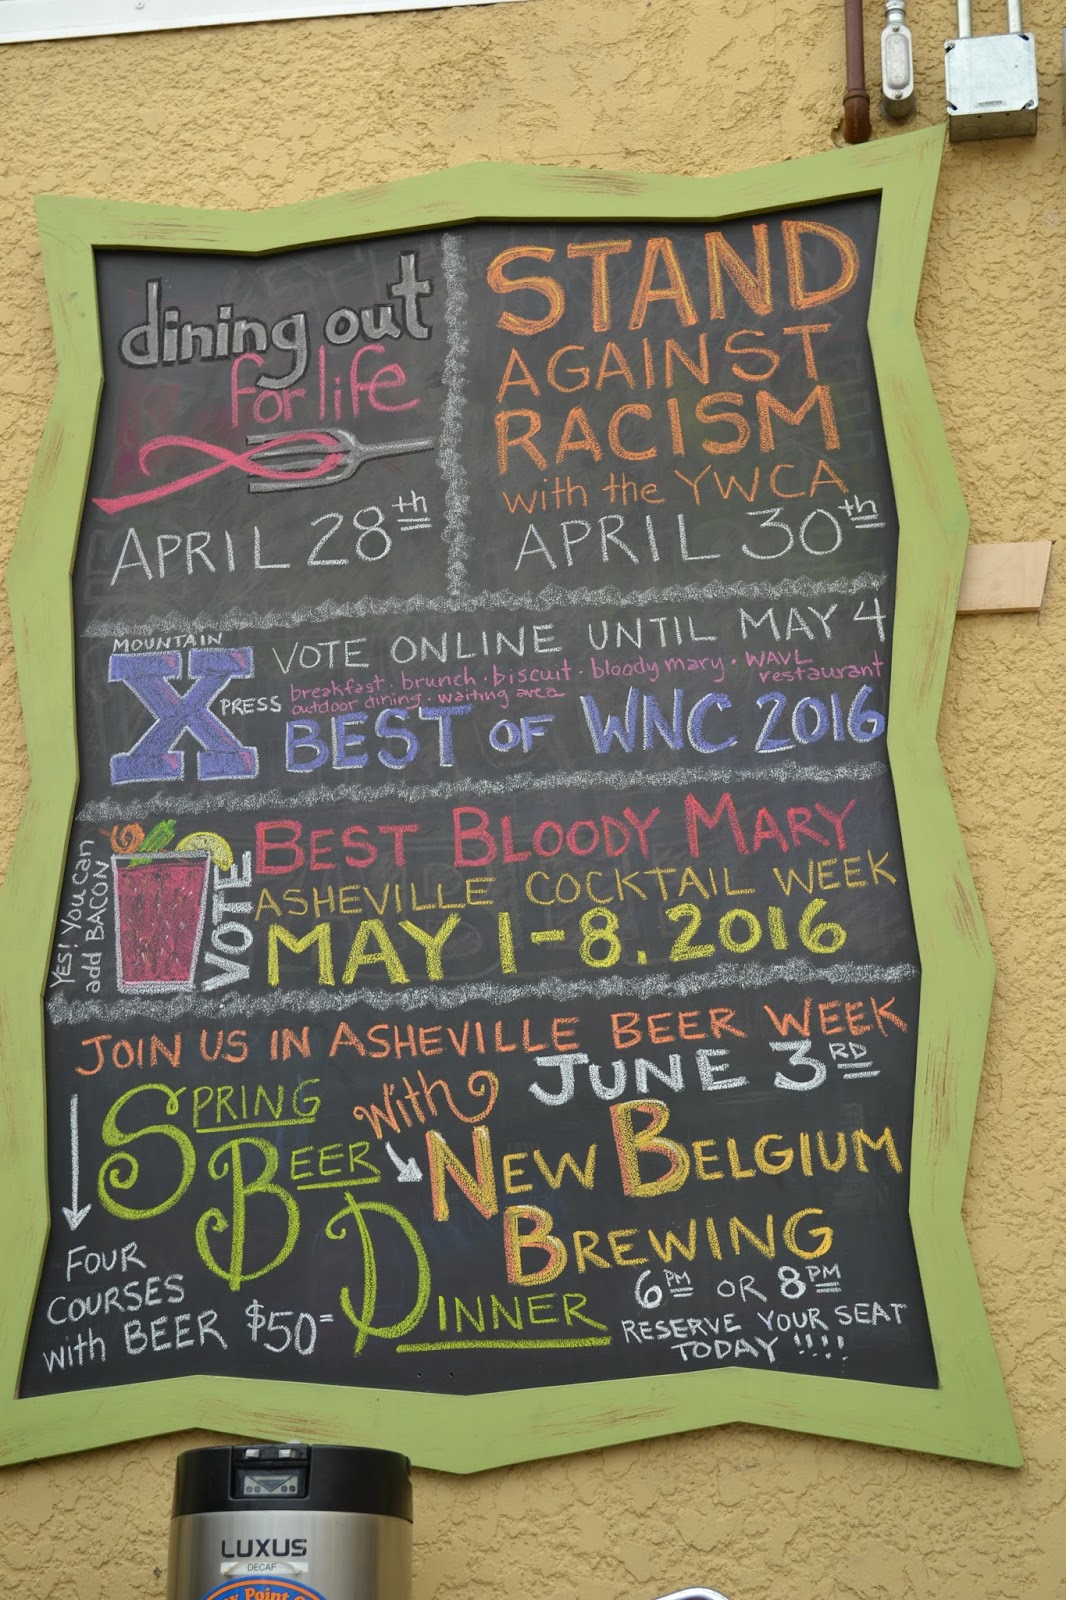 dining out
for life
APRIL 28th
STAND
AGAINST
RACISM
with the YWCA
APRIL 30th
MOUNTAIN
X
PRESS
VOTE ONLINE UNTIL MAY 4
breakfast · brunch · biscuit · bloody mary · WAVL
outdoor dining · waiting area restaurant
BEST OF WNC 2016
YES! You Can
add BACON
VOTE
BEST BLOODY MARY
ASHEVILLE COCKTAIL WEEK
MAY 1-8, 2016
JOIN US IN ASHEVILLE BEER WEEK
JUNE 3RD
SPRING
BEER
DINNER
with
NEW BELGIUM
BREWING
FOUR
COURSES
with BEER $50=
6PM OR 8PM
RESERVE YOUR SEAT
TODAY !!!!
LUXUS
DECAF
Point